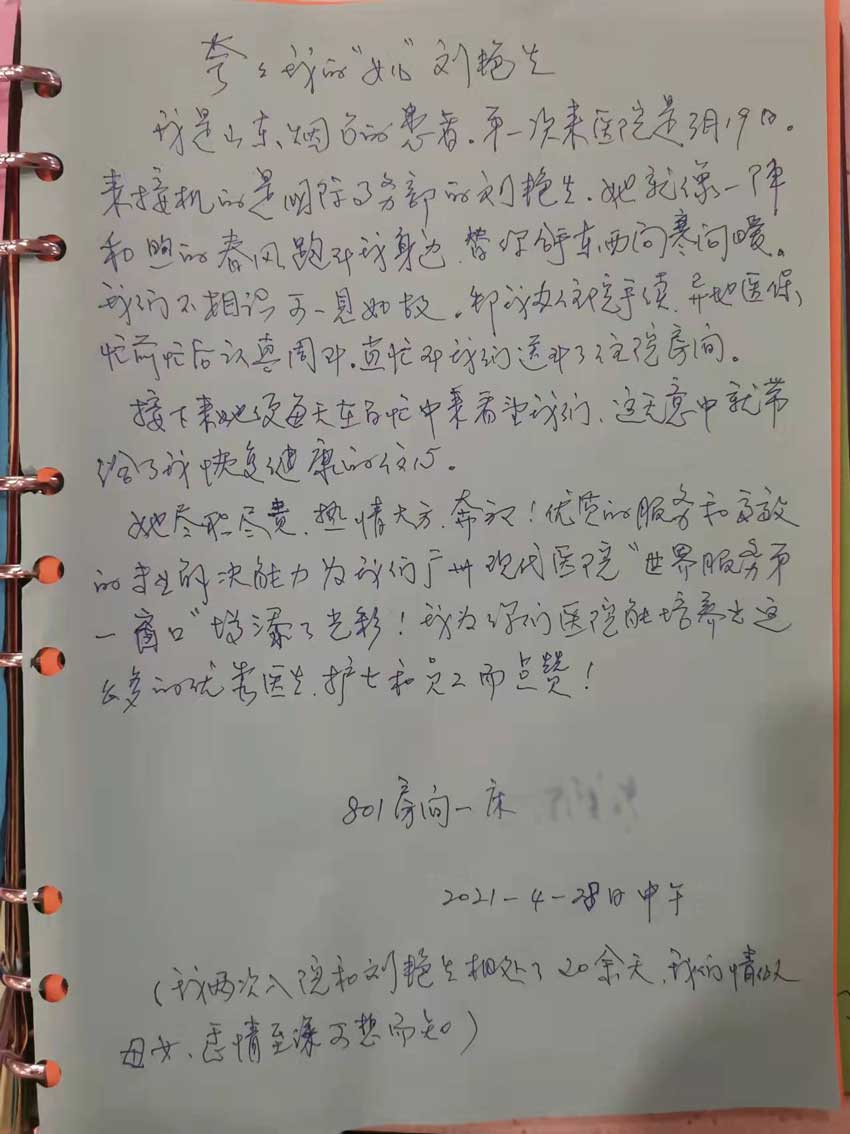 夸々我的“女儿”刘艳生
我是山东、烟台的患者。第一次来医院是3月19日。
来接机的是国际事务部的刘艳生。她就像一阵
和煦的春风跑到我身边、替你拿东西问寒问暖。
我们不相识可一见如故。都我办住院手续、异地医保、
忙前忙后认真周到。直忙到我们送到了住院房间。
接下来她便每天在百忙中来看望我们、这无意中就带
给了我恢复健康的信心。
她尽职尽责、热情大方、奔放！优质的服务和高效
的事务解决能力为我们广州现代医院“世界服务第
一窗口”增添了光彩！我为你们医院能培养出这
么多的优秀医生、护士和员工而点赞！
801房间一床
2021-4-28日中午
（我两次入院和刘艳生相处了20余天、我们情似
母女、感情至深可想而知）